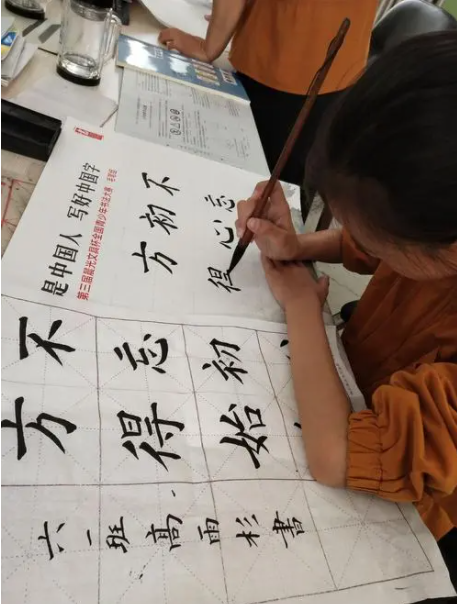 是中国人 写好中国字
第三届晨光文具杯全国青少年书法大赛
不忘
初心
方得
不忘初
方得始
六一班高雨杉書